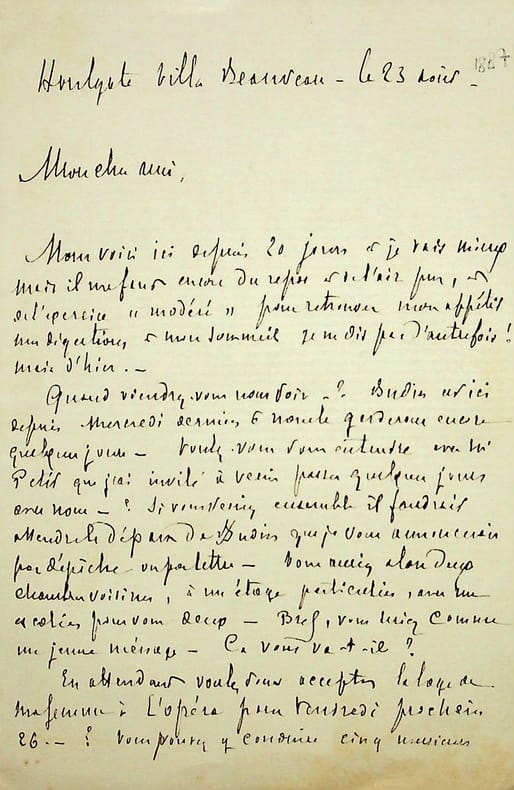 Houlgate Villa Beauveau - le 23 août -
1887
Mon cher ami,
Nous voici ici depuis 20 jours et je vais mieux
mais il me faut encore du repos et de l'air pur, et
de l'exercice « modéré » pour retrouver mon appétit
mes digestions et mon sommeil je ne dis pas d'autrefois !
mais d'hier. -
Quand viendrez-vous nous voir - ? Budin est ici
depuis Mercredi dernier et nous le garderons encore
quelques jours - Voulez-vous vous entendre avec Mr
Petit que j'ai invité à venir passer quelques jours
avec nous - ? Si vous veniez ensemble il faudrait
attendre le départ de Budin que je vous annoncerai
par dépêche ou par lettre - Vous auriez alors deux
chambres voisines, à un étage particulier, avec un
escalier pour vous deux - Bref, vous seriez comme
un jeune ménage - Ca vous va-t-il ?
En attendant voulez-vous accepter la loge de
ma femme à L'opéra pour Vendredi prochain
26. - ? Vous pourrez y conduire cinq messieurs